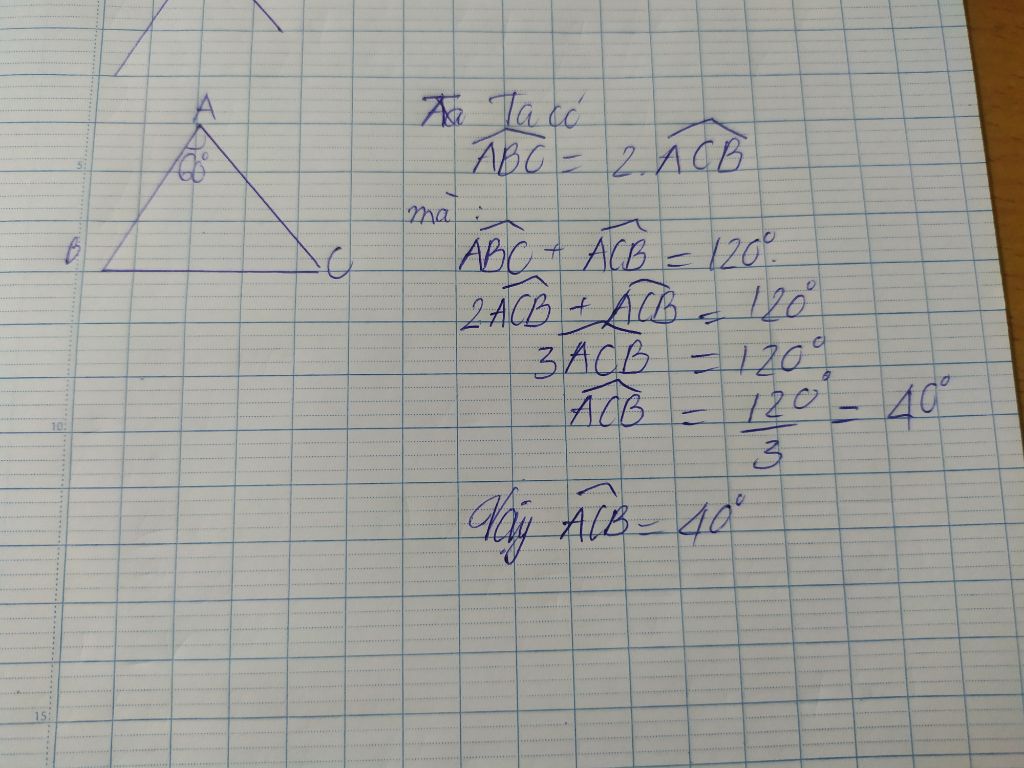 A
60°
B
C
Ta Ta có
ABC = 2. ACB
mà :
ABC + ACB = 120°.
2ACB + ACB = 120°
3 ACB = 120°
ACB = 120°/3 = 40°
Vậy ACB = 40°
5
10
15